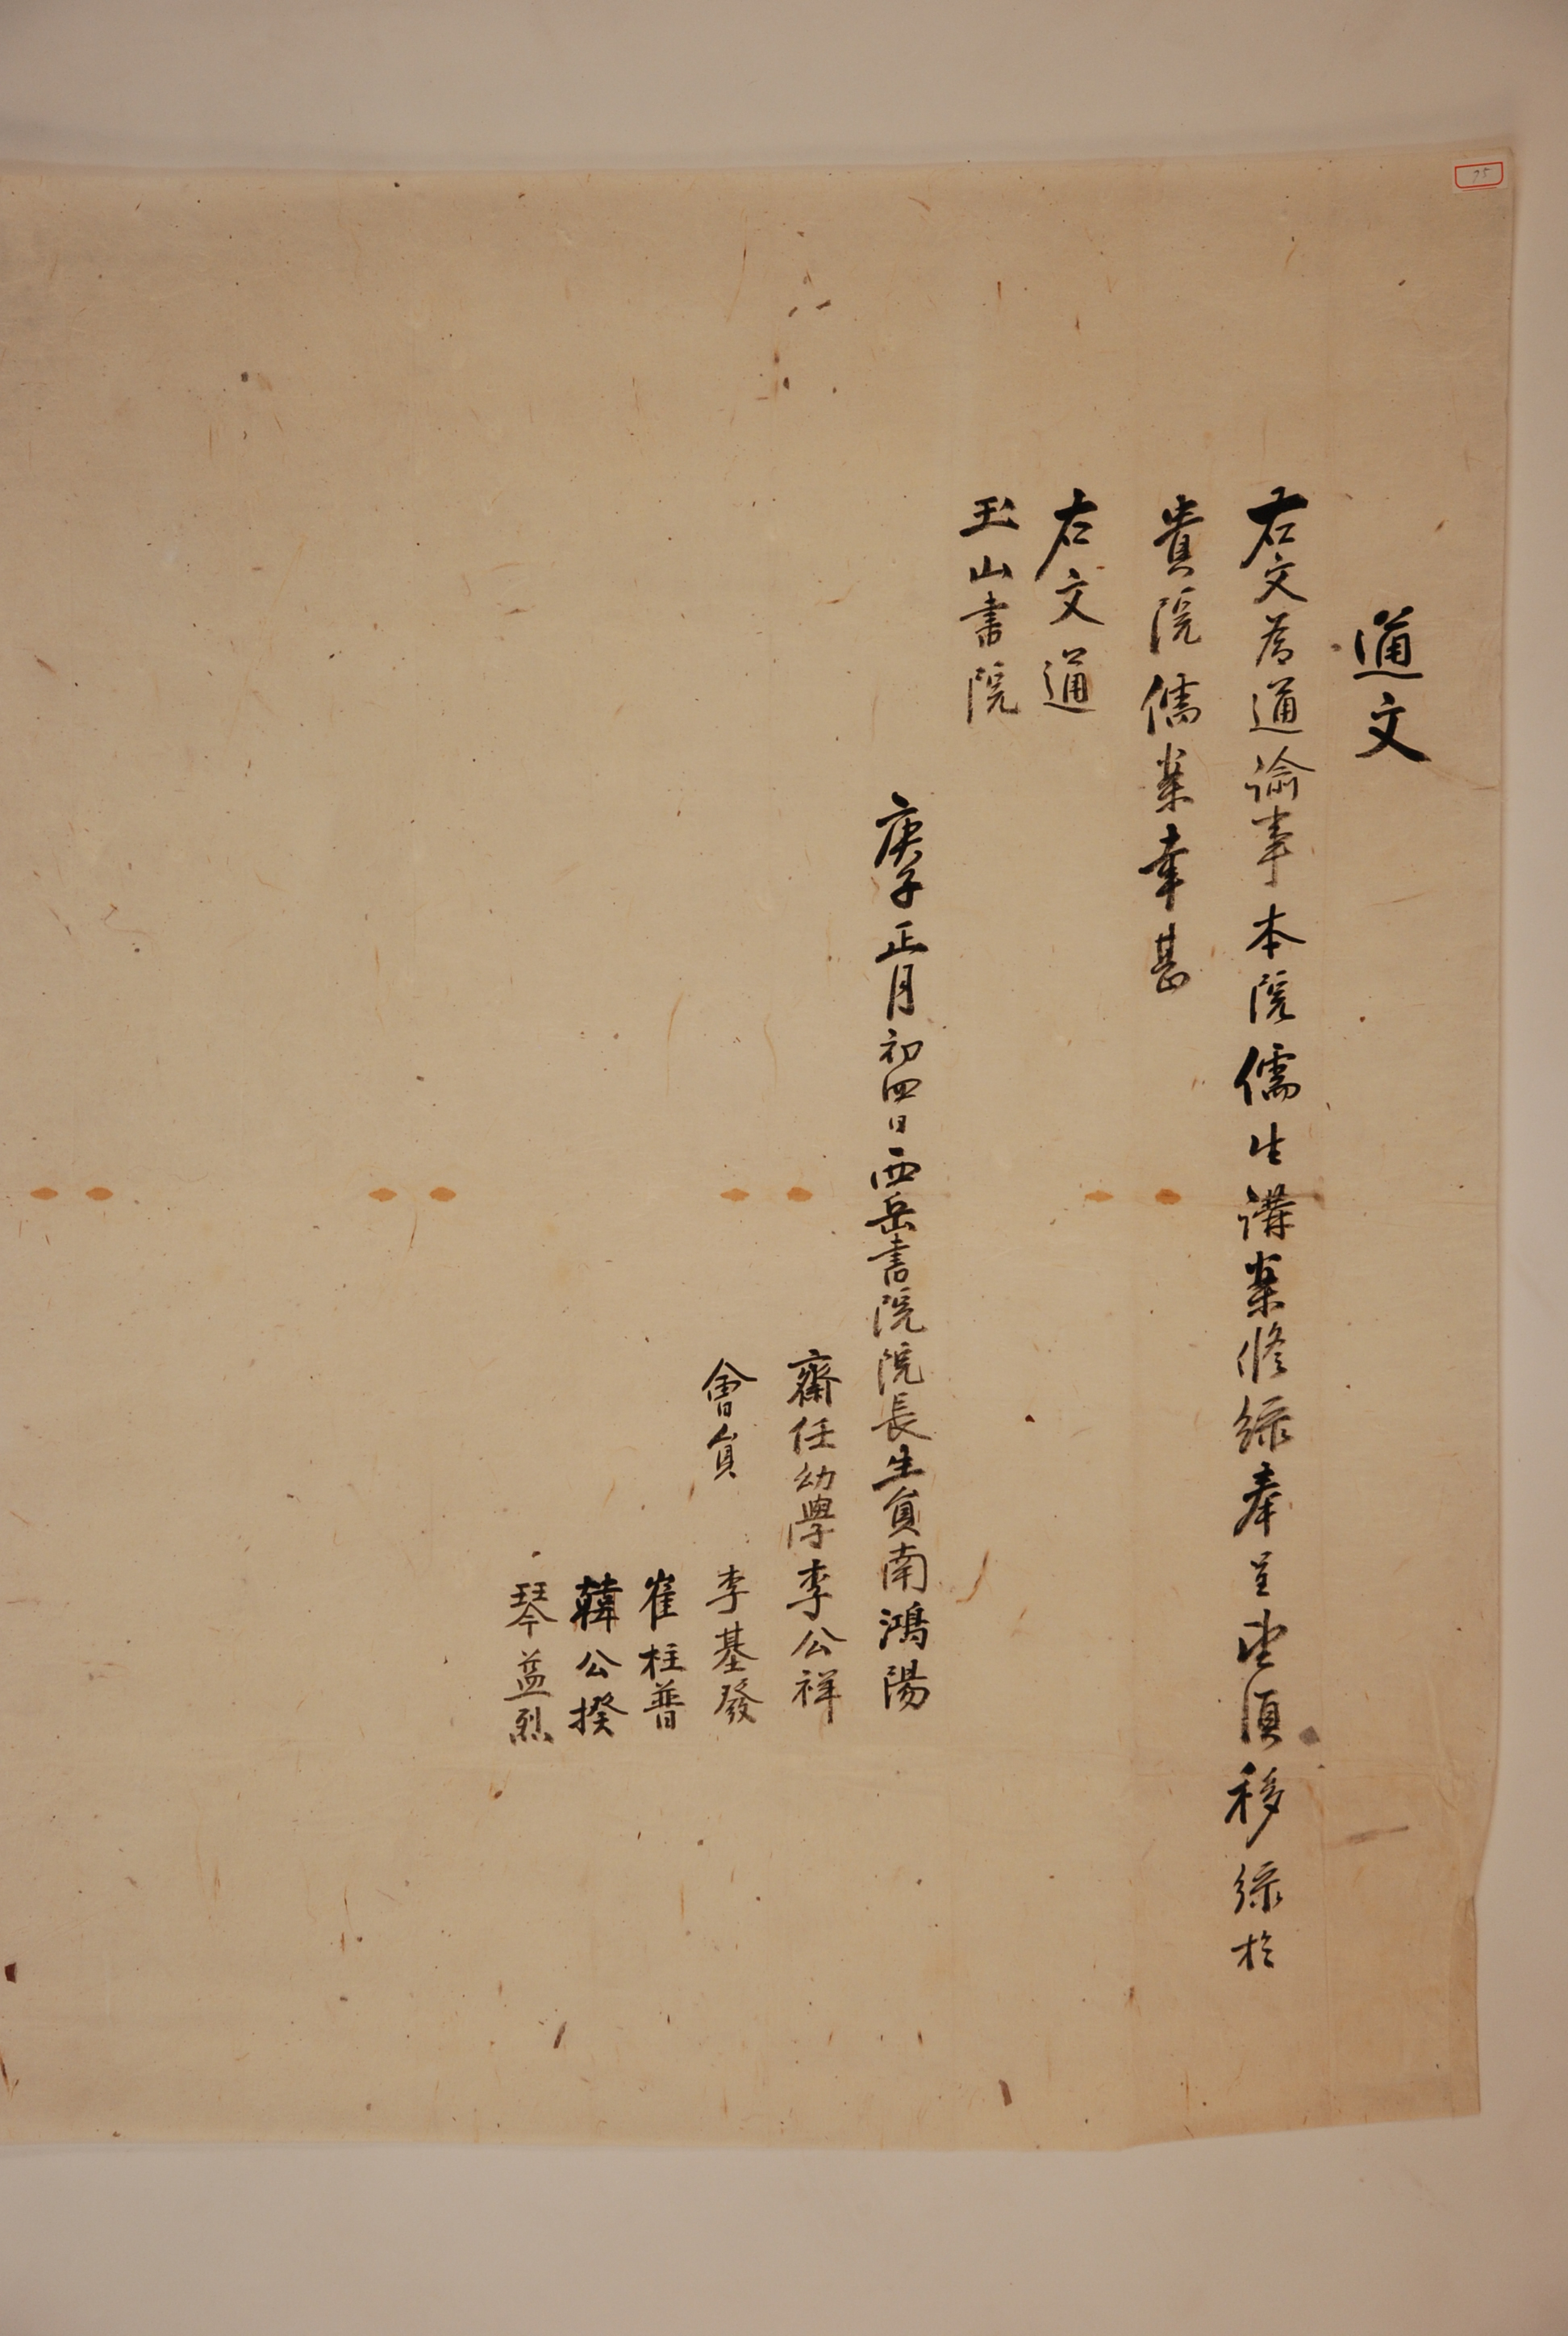 75
通文
右文爲通諭事本院儒生講案修錄奉呈望須移錄於
貴院儒案幸甚
右文通
玉山書院
庚子正月初四日西岳書院院長生員南鴻陽
齋任幼學李公祥
會員 李基發
崔柱普
韓公揆
琴益烈